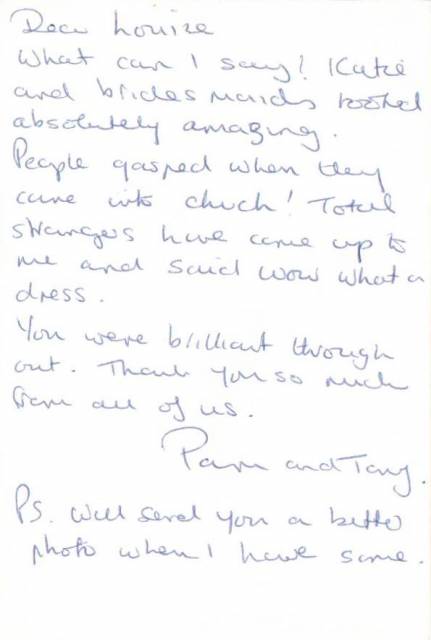 Dear Louise
What can I say! Katie
and bridesmaids looked
absolutely amazing.
People gasped when they
came into church! Total
strangers have come up to
me and said wow what a
dress.
You were brilliant through
out. Thank you so much
from all of us.
Pam and Tony.
PS. Will send you a better
photo when I have some.